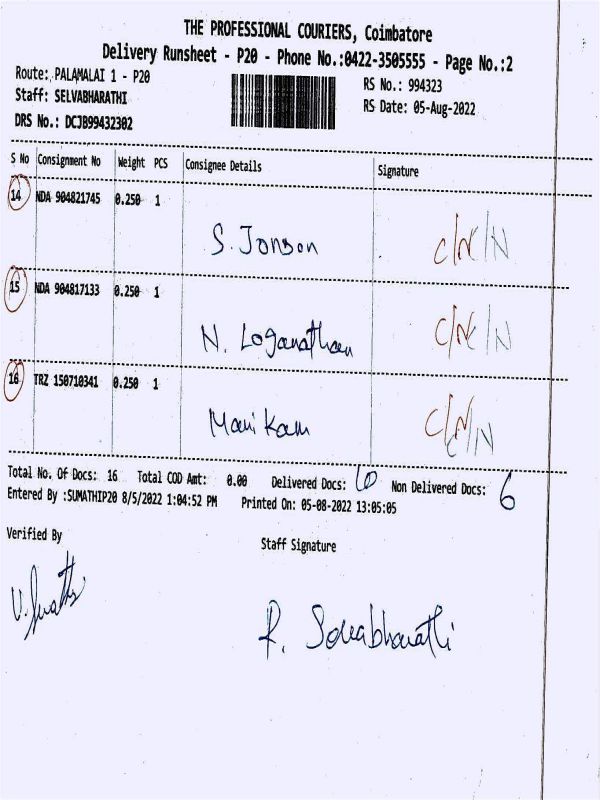 THE PROFESSIONAL COURIERS, Coimbatore
Delivery Runsheet - P20 - Phone No.:0422-3505555 - Page No.:2
Route: PALAMALAI 1 - P20
RS No.: 994323
Staff: SELVABHARATHI
RS Date: 05-Aug-2022
DRS No.: DCJB99432302
S No Consignment No Weight PCS Consignee Details Signature
14 NDA 904821745 0.250 1
S. Jonson C/N C/N
15 NDA 904817133 0.250 1
N. Loganathan C/N C/N
16 TRZ 150710341 0.250 1
Manikam C/N C/N
Total No. Of Docs: 16 Total COD Amt: 0.00 Delivered Docs: 10 Non Delivered Docs: 6
Entered By :SUMATHIP20 8/5/2022 1:04:52 PM Printed On: 05-08-2022 13:05:05
Verified By
Staff Signature
R. Selvabharathi